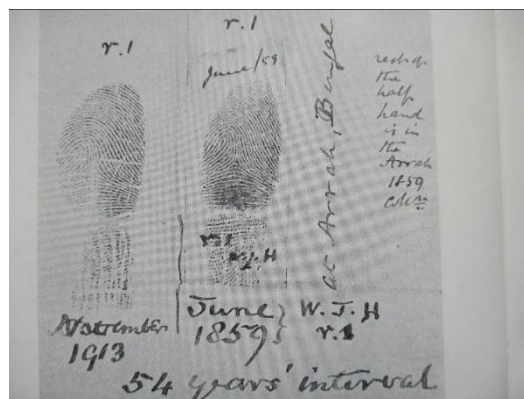 r.1
r.1
June/59
at Arrah, Bengal
rest of
the
half
hand
is in
the
Arrah
1859
W.J.H
November
1913
June
1859
W.J.H
r.1
54 years' interval